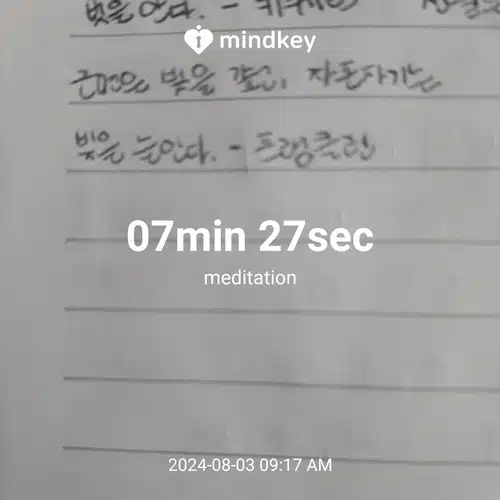 빚을 안다. -
mindkey
근면은 빚을 갚고, 자포자기는
빚을 늘인다. - 프랭클린
07min 27sec
meditation
2024-08-03 09:17 AM